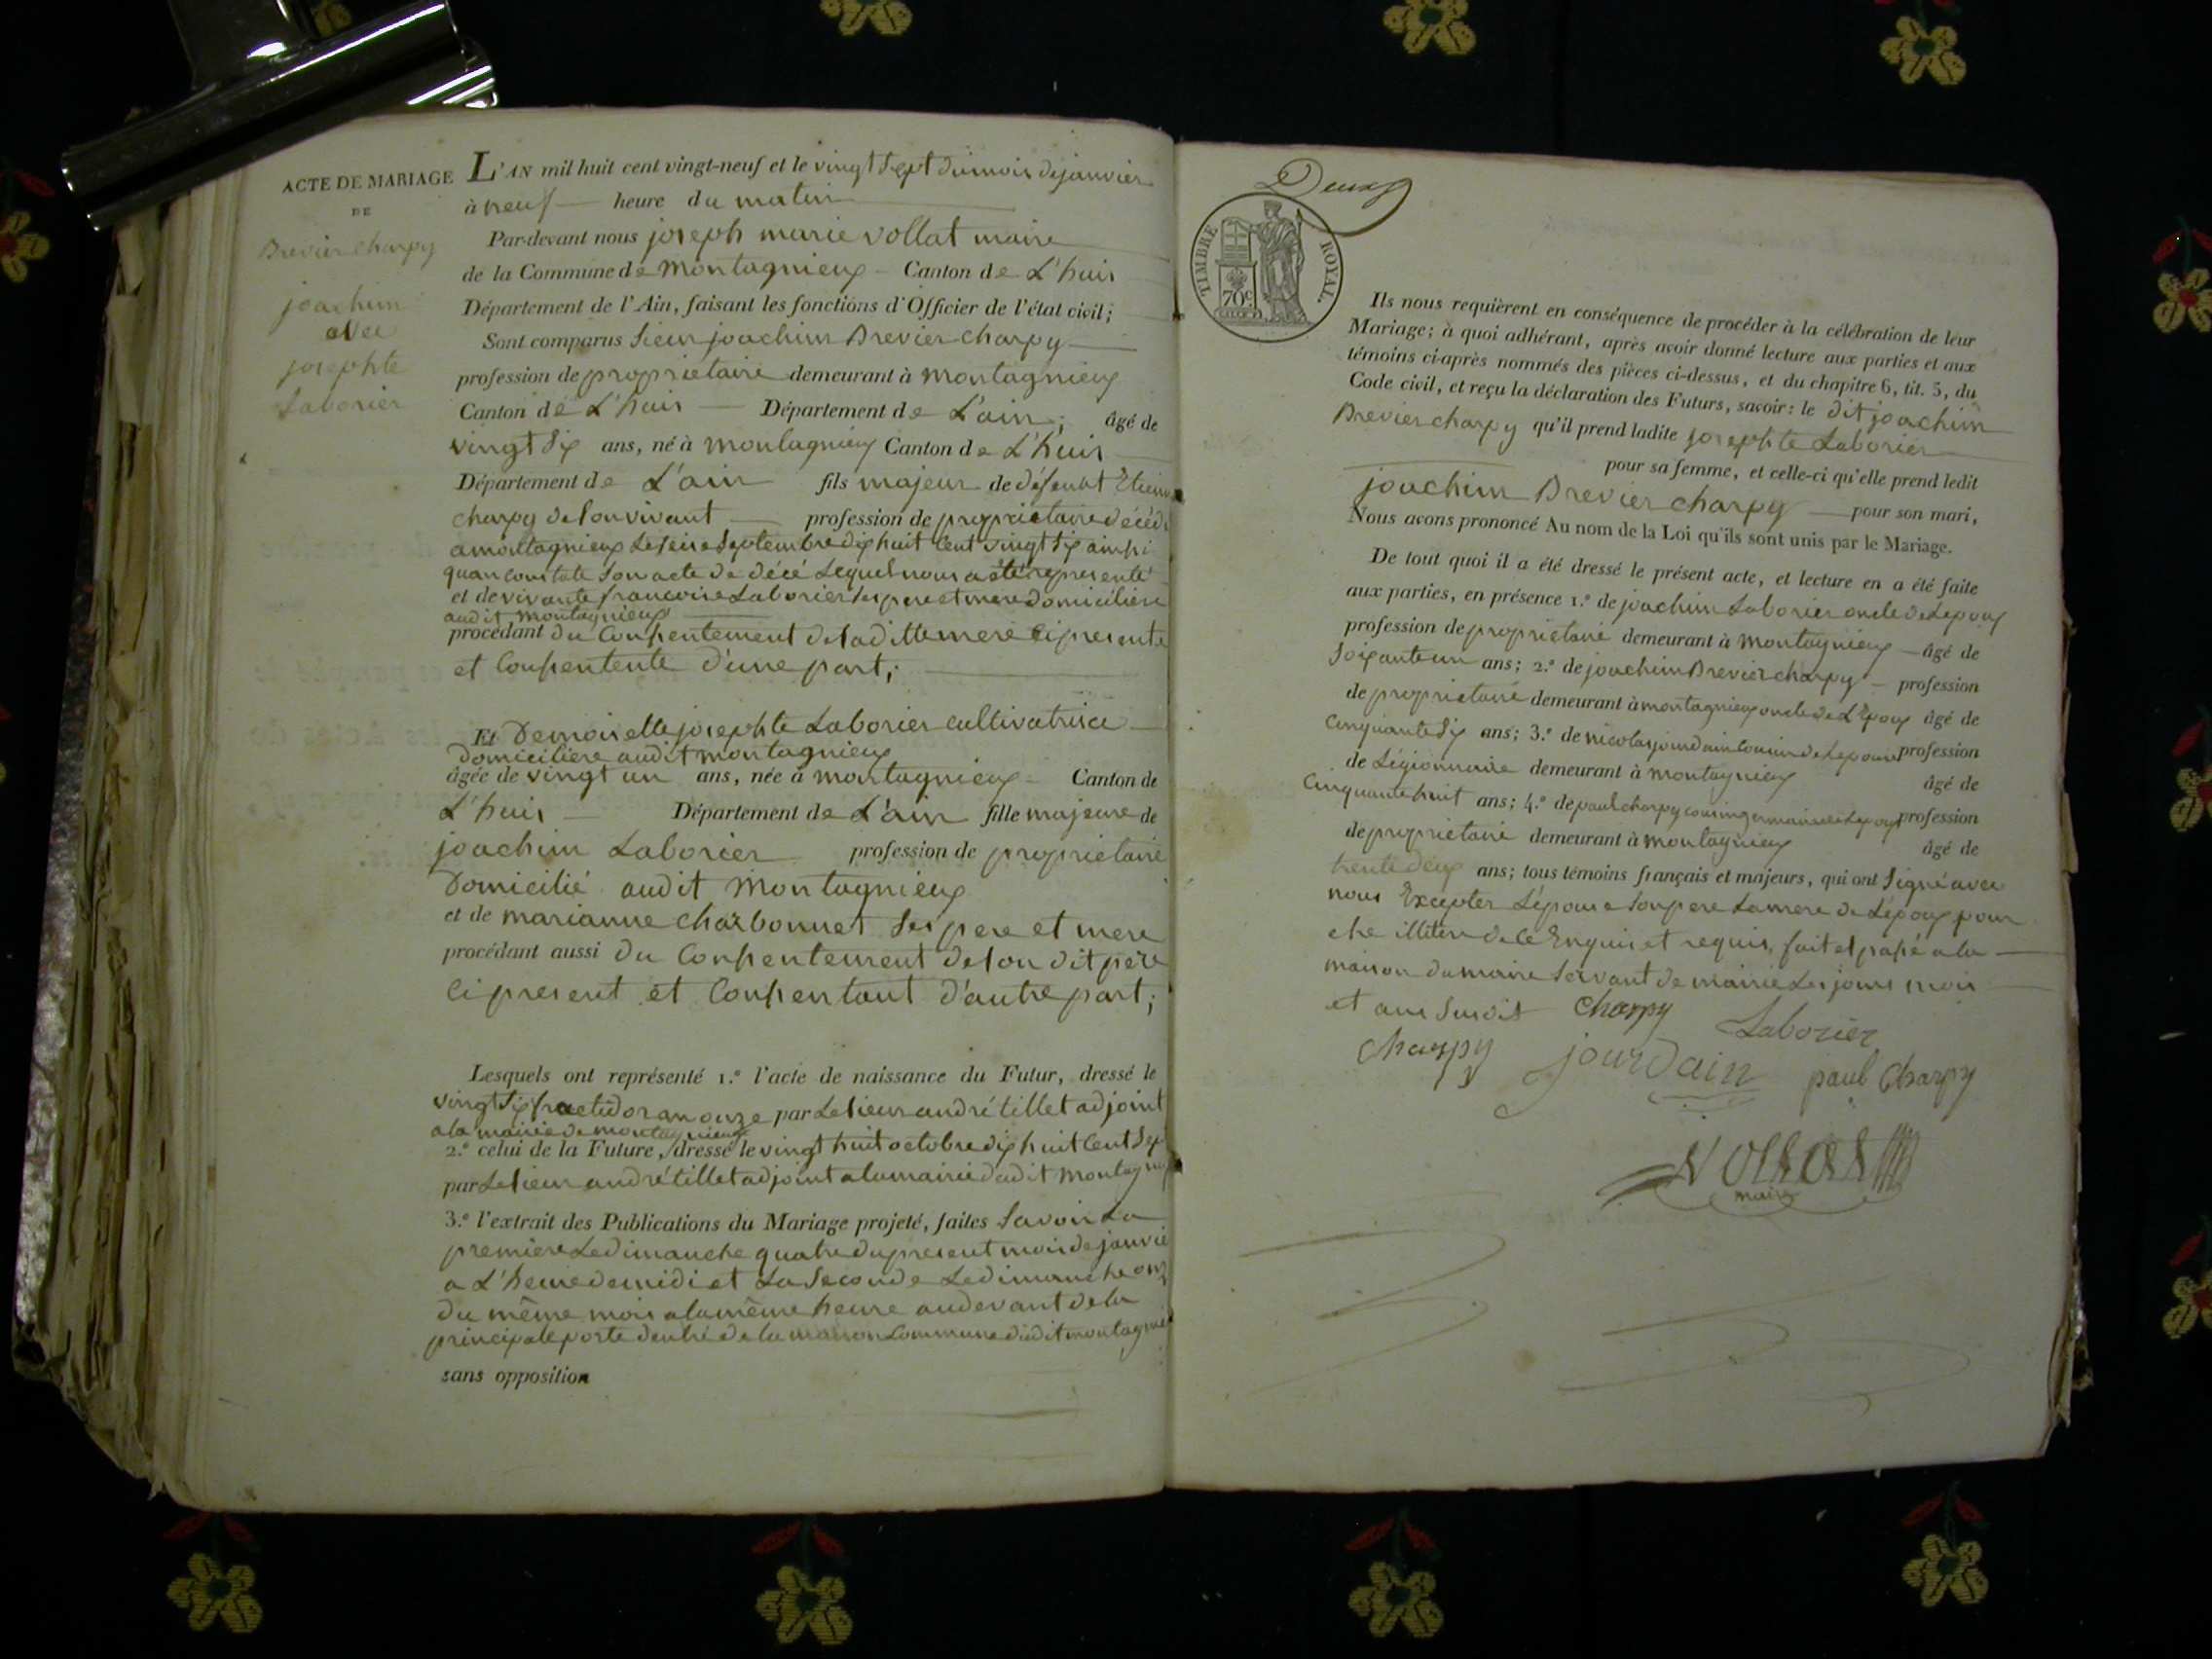 ACTE DE MARIAGE
DE
Brevier charpy
joachim
avec
josephte
Laborier
L'AN mil huit cent vingt-neuf et le vingt sept du mois de janvier
à neuf heure du matin
Par-devant nous joseph marie vollat maire
de la Commune de Montagnieux Canton de L'huis
Département de l'Ain, faisant les fonctions d'Officier de l'état civil;
Sont comparus Sieur joachim Brevier charpy
profession de proprietaire demeurant à montagnieux
Canton de L'huis Département de L'ain; âgé de
vingt Six ans, né à montagnieux Canton de L'huis
Département de L'ain fils majeur de défeunt Etienne
charpy de Son vivant profession de proprietaire décédé
a montagnieux Le Seise Septembre dix huit Cent vingt Six ainsi
quan constate Son acte de décé Lequel nous a été representé
et de vivante francoise Laborier Ses pere et mere domiciliere
audit montagnieux
procédant du Consentement de Sa ditte mere Ci presente
et Consentente d'une part;
Et Demoiselle josephte Laborier cultivatrice
domiciliere audit montagnieux
âgée de vingt un ans, née à montagnieux Canton de
L'huis Département de L'ain fille majeure de
joachim Laborier profession de proprietaire
Domicilié audit Montagnieux
et de marianne charbonnet Ses pere et mere
procédant aussi du Consentement de Son dit père
Ci present et Consentant d'autre part;
Lesquels ont représenté 1.º l'acte de naissance du Futur, dressé le
vingt Six fructidor an onze par Le Sieur andré tillet adjoint
a la mairie de montagnieux
2.º celui de la Future, dressé le vingt huit octobre dix huit Cent Sept
par Le Sieur andré tillet adjoint a la mairie dudit montagni
3.º l'extrait des Publications du Mariage projeté, faites Savoir La
premiere Le dimanche quatre du present mois de janvie
a L'heure de midi et La Seconde Le dimanche onz
du même mois a la même heure au devant de la
principale porte dentré de la maison Commune dudit montagnie
sans opposition
Deux
TIMBRE ROYAL.
70c
Ils nous requièrent en conséquence de procéder à la célébration de leur
Mariage; à quoi adhérant, après avoir donné lecture aux parties et aux
témoins ci-après nommés des pièces ci-dessus, et du chapitre 6, tit. 5, du
Code civil, et reçu la déclaration des Futurs, savoir: le dit joachim
Brevier charpy qu'il prend ladite josephte Laborier
pour sa femme, et celle-ci qu'elle prend ledit
joachim Brevier charpy pour son mari,
Nous avons prononcé Au nom de la Loi qu'ils sont unis par le Mariage.
De tout quoi il a été dressé le présent acte, et lecture en a été faite
aux parties, en présence 1.º de joachim Laborier oncle de Lepoux
profession de proprietaire demeurant à Montagnieux âgé de
Soixante un ans; 2.º de joachim Brevier charpy profession
de proprietaire demeurant à montagnieux oncle de L'Epoux âgé de
Cinquante Six ans; 3.º de nicolas jourdain Cousin de Lepouse profession
de Légionnaire demeurant à montagnieux âgé de
Cinquante huit ans; 4.º de paul charpy cousin germain de Lepoux profession
de proprietaire demeurant à montagnieux âgé de
trente deux ans; tous témoins français et majeurs, qui ont Signé avec
nous Excepter L'épouse Son pere La mere de L'époux pour
etre illitere de Ce Enquis et requis, fait et passé a la
maison du maire Servant de mairie Les jours mois
et ans Susdit charpy
Laborier
charpy
jourdain
paul Charpy
Vollat
maire